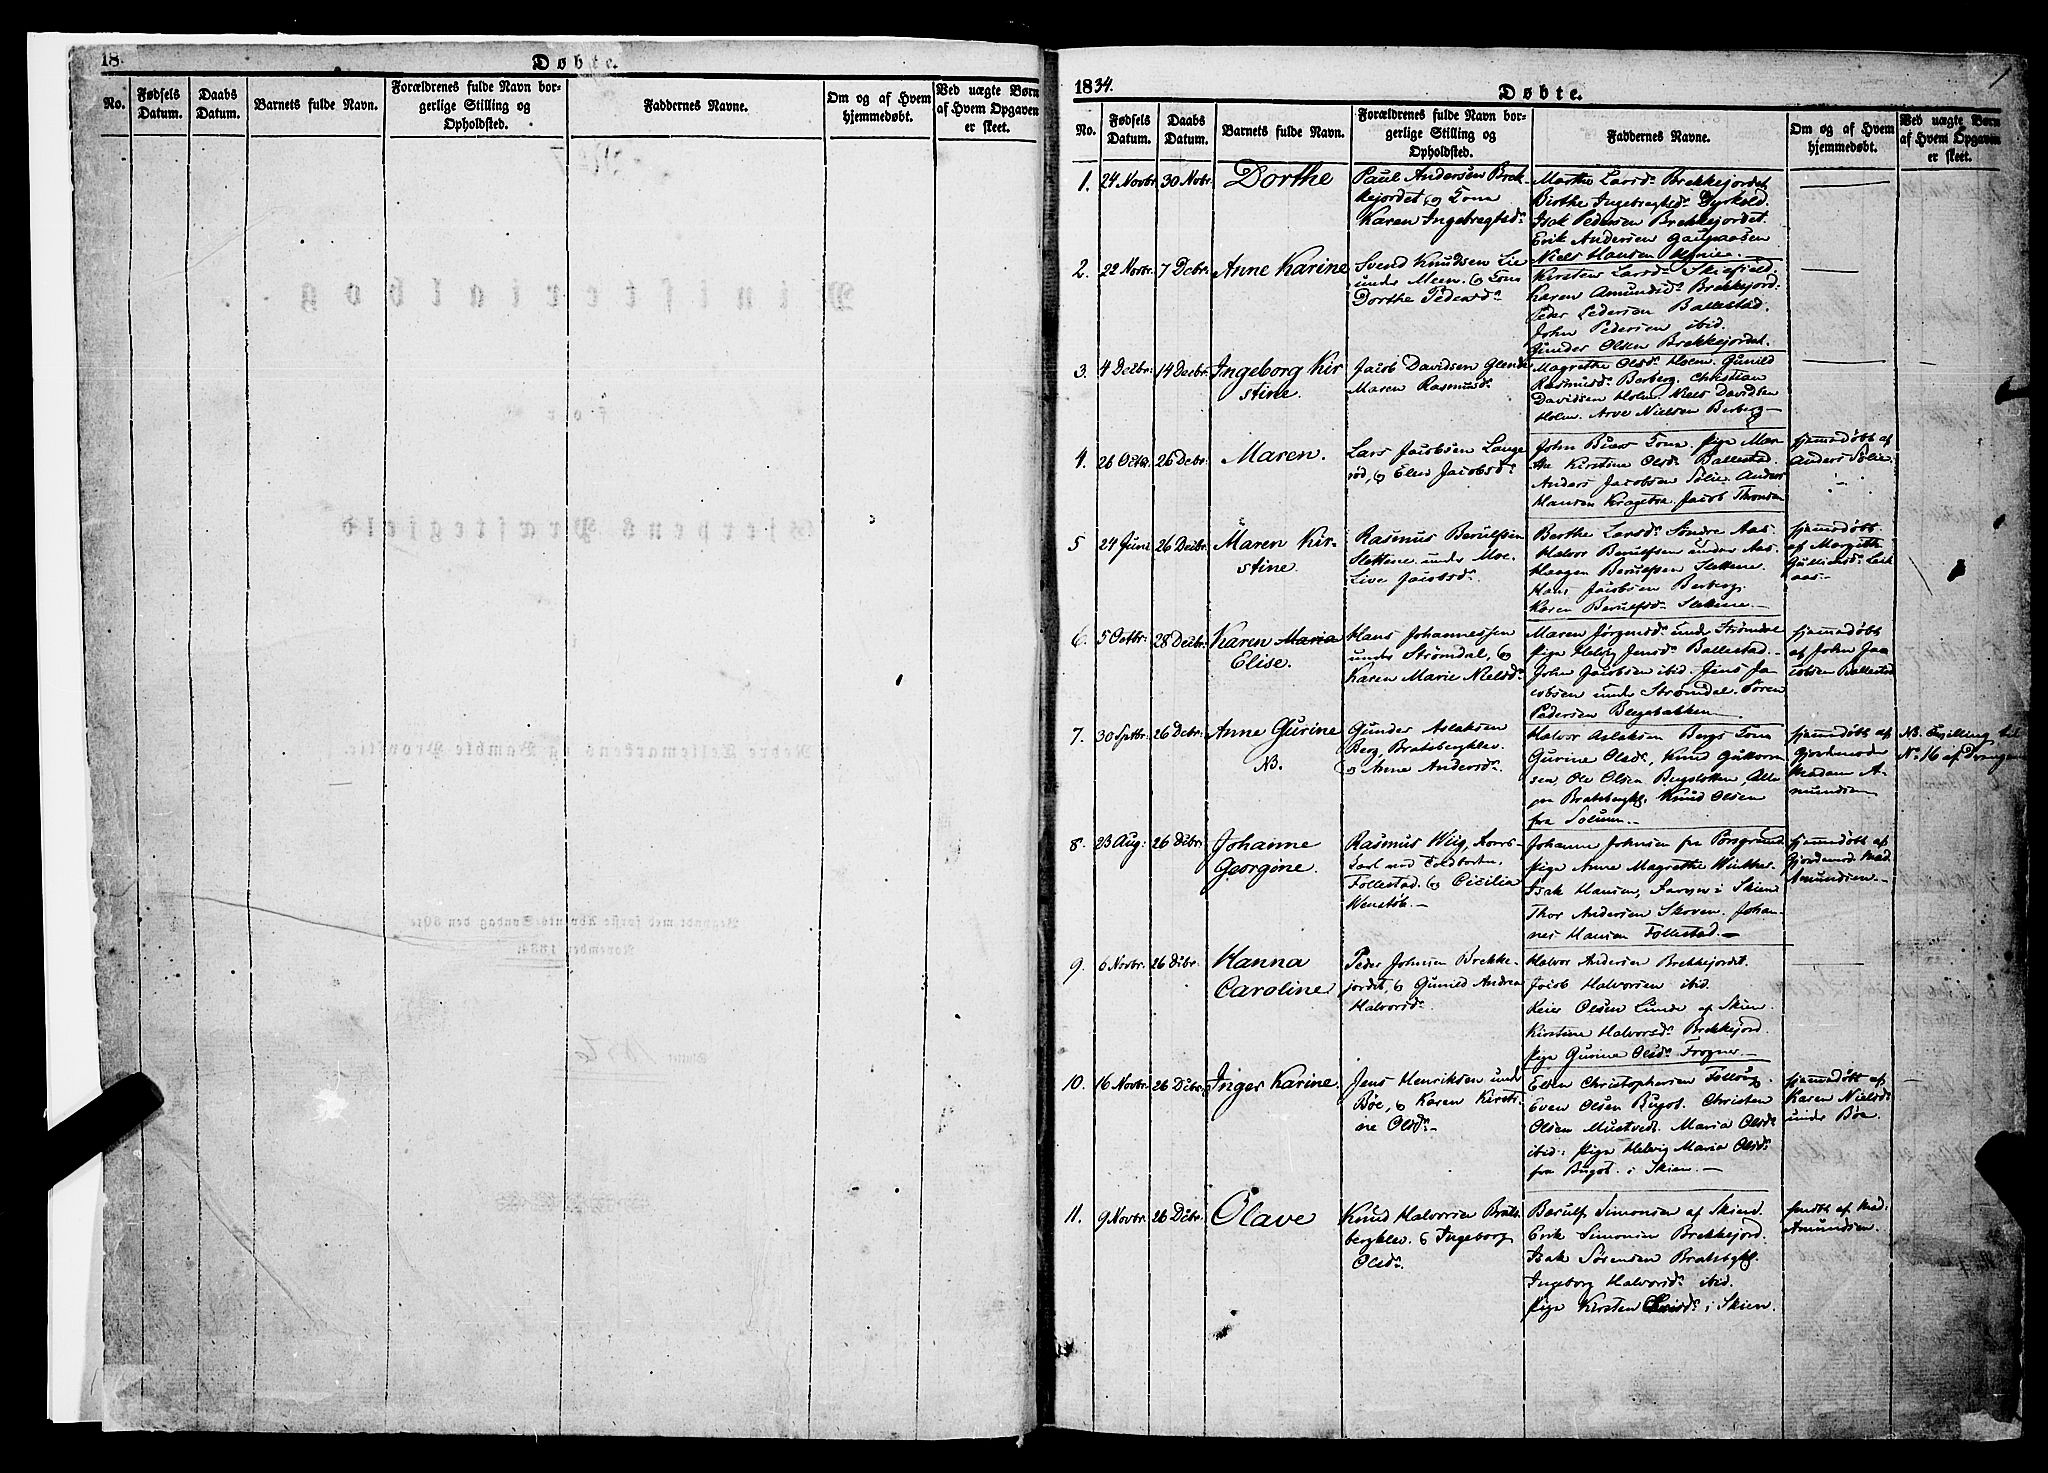 18
Døbte.
No.
Fødsels Datum.
Daabs Datum.
Barnets fulde Navn.
Forældrenes fulde Navn borgerlige Stilling og Opholdsted.
Faddernes Navne.
Om og af Hvem hjemmedøbt.
Ved uægte Børn af Hvem Opgaven er skeet.
1834.
Døbte.
1
No.
Fødsels Datum.
Daabs Datum.
Barnets fulde Navn.
Forældrenes fulde Navn borgerlige Stilling og Opholdsted.
Faddernes Navne.
Om og af Hvem hjemmedøbt.
Ved uægte Børn af Hvem Opgaven er skeet.
1. 24 Novbr. 30 Novbr. Dorthe
Paul Andersen Brek-
kejordet og Kona
Karen Ingebregtsd.
Marthe Larsd. Brekkejordet
Birthe Ingebregtsd. Dyrkold.
Isak Pedersen Brekkejordet.
Erik Andersen Gaupaasen
Niels Hansen
2. 22 Novbr. 7 Decbr. Anne Karine
Svend Knudsen Lie
under Meen. og Kona
Dorthe Pedersd.
Kirsten Larsd. Skiefjeld.
Karen Amundsd. Brekkejord.
Peder Pedersen Ballestad
John Pedersen ibid.
Gunder Olsen Brekkejordet.
3. 4 Decbr. 14 Decbr. Ingeborg Kir
stine.
Jacob Davidsen
Maren Rasmusd.
Magrethe Olsd. Holm. Gunild
Rasmusd. Berberg. Christian
Davidsen Holm. Niels Davidsen
Holm. Arve Nielsen Berberg
4. 26 Octbr. 26 Decbr. Maren.
Lars Jacobsen Lange
rød, og Elen Jacobsd.
John Kona. Pige Mar
the Kirstine Olsd. Ballestad
Anders Jacobsen Sølie. Anders
Hansen Jacob Thomsen
hjemmedøbt af
Anders Sølie.
5 24 Juni 26 Decbr. Maren Kir-
stine.
Rasmus Berulfsen
Slettene under Moe
Live Jacobsd.
Berthe Larsd. Søndre Aas.
Halvor Berulfsen under Aas.
Haagen Berulfsen Slettene.
Hans Jacobsen Berberg.
Karen Berulfsd. Slettene.
hjemmedøbt
af Margith
aas.
6. 5 Octbr. 28 Decbr. Karen Maria
Elise.
Hans Johannessen
under Strømdal, og
Karen Marie Nielsd.
Maren Jørgensd. under Strømdal
Pige Helvig Jensd. Ballestad.
John Jacobsen ibid. Jens Ja
cobsen under Strømdal. Søren
Pedersen Bergsbakken
hjemmedøbt
af John Ja
cobsen Ballestad
7. 30 Septbr. 26 Decbr. Anne Gurine
NB.
Gunder Aslaksen
Berg, Bratsbergklev.
og Anne Andersd.
Halvor Aslaksen Bergs Kona
Gurine Olsd., Knud Guttorm
sen, Ole Olsen Bugslotten, Alle
paa Bratsbergkl. Knud Olsen
fra Solum.
hjemmedøbt af
Gjordemoder
Madam A-
mundsen
NB. Tvilling til
No. 16 af Drengene
8. 23 Aug: 26 Decbr. Johanne
Georgine.
Rasmus Wiig,
Karl ved Toldboden,
Follestad. og Cicilia
Wenstøb.
Johanne Johnsen fra Porsgrund
Pige Anne Magrethe
Isak Hansen, i Skien
Thor Andersen Skoven. Johan-
nes Hansen Follestad.
hjemmedøbt af
Gjordemod. Mad.
Amundsen.
9. 6 Novbr. 26 Decbr. Hanna
Caroline
Peder Johnsen Brekke-
jordet, og Gunild Andrea
Halvorsd.
Halvor Andersen Brekkejordet.
Jacob Halvorsen ibid.
Reier Olsen Lunde af Skien
Kirstine Halvorsd. Brekkejord.
Pige Gurine Olsd. Frogner.
10. 16 Novbr. 26 Decbr. Inger Karine.
Jens Henriksen under
Bøe, og Karen Kirsti-
ne Olsd.
Elen Christophersen
Even Olsen Bugst. Christen
Olsen Mustved. Maria Olsd.
ibid: Pige Helvig Maria Olsd.
fra Bugst. i Skien.
hjemmedøbt af
Karen Nielsd.
under Bøe.
11. 9 Novbr. 26 Decbr. Olave
Knud Halvorsen Brats
bergklev. og Ingeborg
Olsd.
Berulf Simonsen af Skien.
Erik Simonsen Brekkejord.
Isak Sørensen Bratsbgkl.
Ingeborg Halvorsd. ibid.
Pige Kirsten i Skien.
hmdbt af Mad:
Amundsen.